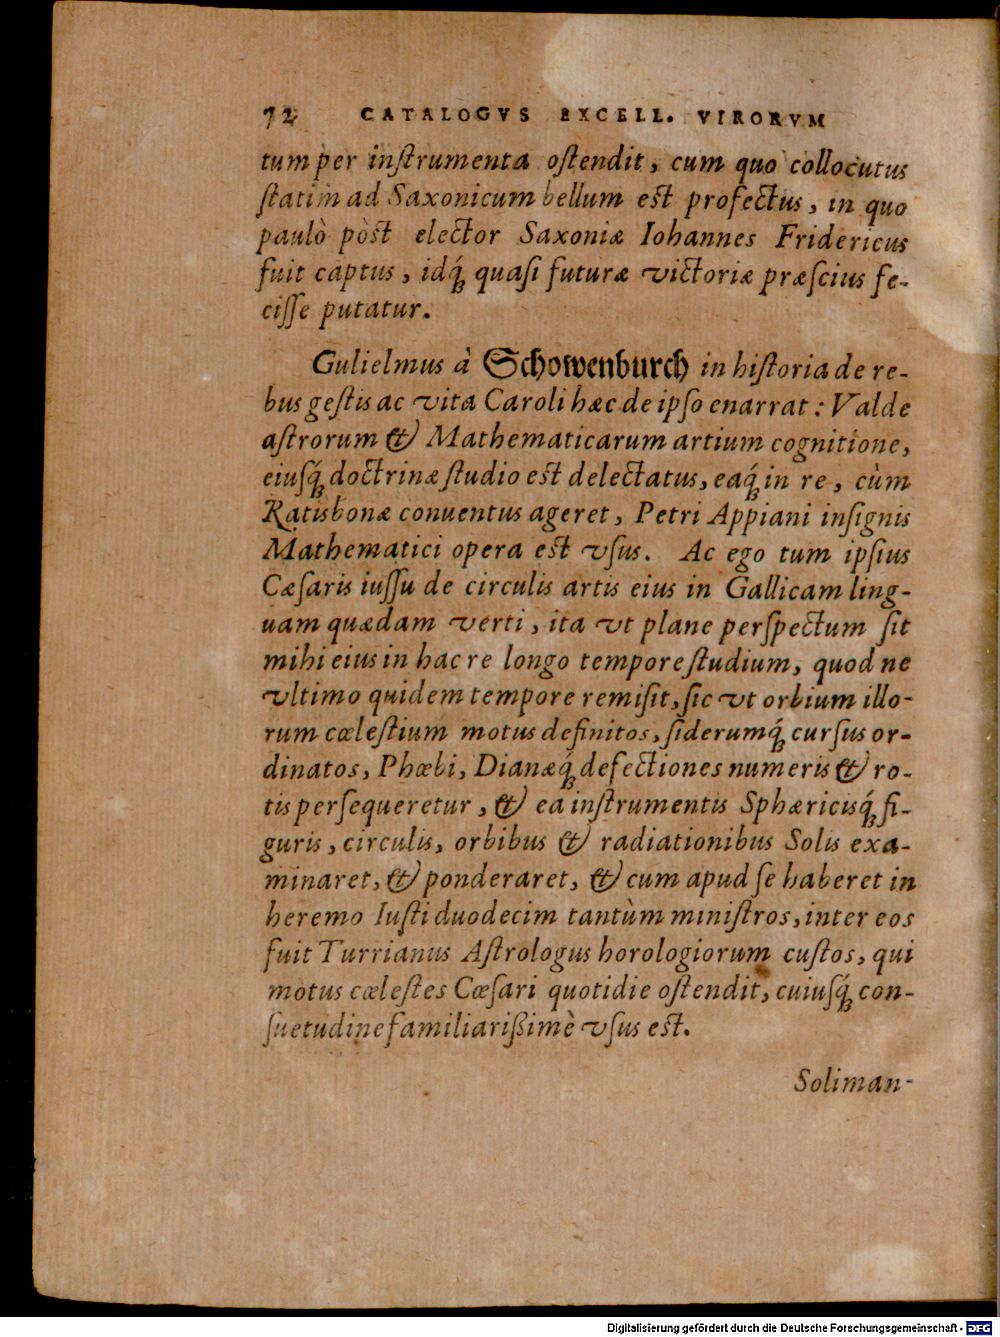 72 CATALOGVS EXCELL. VIRORVM
tum per inſtrumenta oſtendit, cum quo collocutus
ſtatim ad Saxonicum bellum eſt profectus, in quo
paulò pòſt elector Saxoniæ Iohannes Fridericus
fuit captus, idq́ꝫ quaſi futuræ victoriæ præſcius fe-
ciſſe putatur.
Gulielmus à Schowenburch in hiſtoria de re-
bus geſtis ac vita Caroli hæc de ipſo enarrat: Valde
aſtrorum & Mathematicarum artium cognitione,
eiuſq́ꝫ doctrinæ ſtudio eſt delectatus, eaq́ꝫ in re, cùm
Ratisbonæ conuentus ageret, Petri Appiani inſignis
Mathematici opera eſt vſus. Ac ego tum ipſius
Cæſaris iuſſu de circulis artis eius in Gallicam ling-
uam quædam verti, ita vt plane perſpectum ſit
mihi eius in hac re longo tempore ſtudium, quod ne
vltimo quidem tempore remiſit, ſic vt orbium illo-
rum cœleſtium motus definitos, ſiderumq́ꝫ curſus or-
dinatos, Phœbi, Dianæq́ꝫ defectiones numeris & ro-
tis perſequeretur, & ea inſtrumentis Sphæricisq́ꝫ fi-
guris, circulis, orbibus & radiationibus Solis exa-
minaret, & ponderaret, & cum apud ſe haberet in
heremo Iuſti duodecim tantùm miniſtros, inter eos
fuit Turrianus Aſtrologus horologiorum cuſtos, qui
motus cœleſtes Cœſari quotidie oſtendit, cuiuſq́ꝫ con-
ſuetudine familiarißimè vſus eſt.
Soliman-
Digitalisierung gefördert durch die Deutsche Forschungsgemeinschaft - DFG